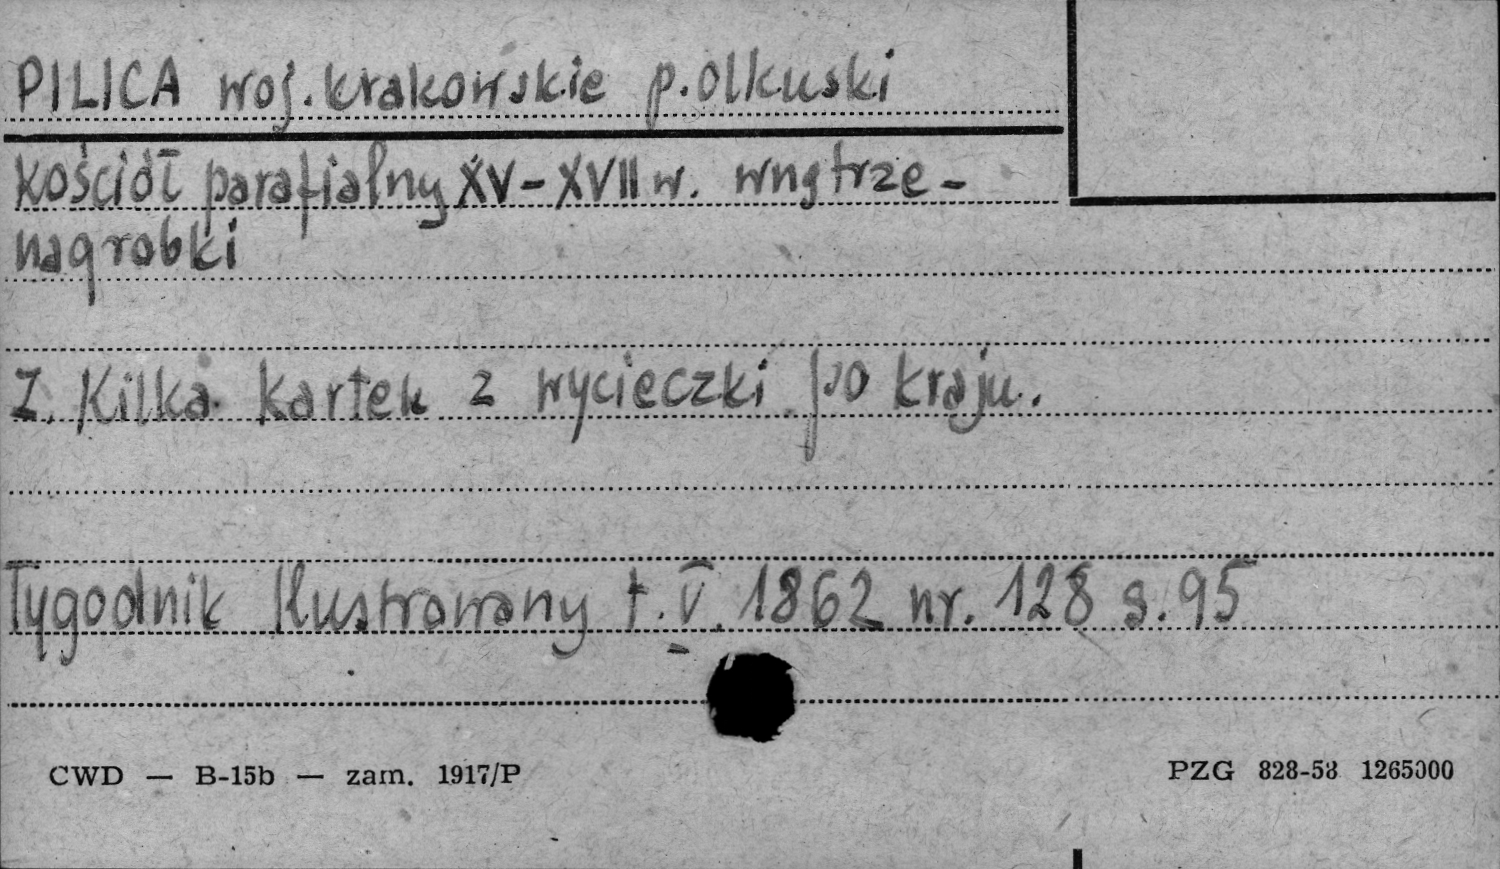 PILICA woj. krakowskie p. olkuski
Kościół parafialny XV-XVII w. wnętrze -
nagrobki
Z. Kilka kartek z wycieczki po kraju.
Tygodnik Ilustrowany t. V. 1862 nr. 128 s. 95
CWD — B-15b — zam. 1917/P
PZG 828-58 1265000